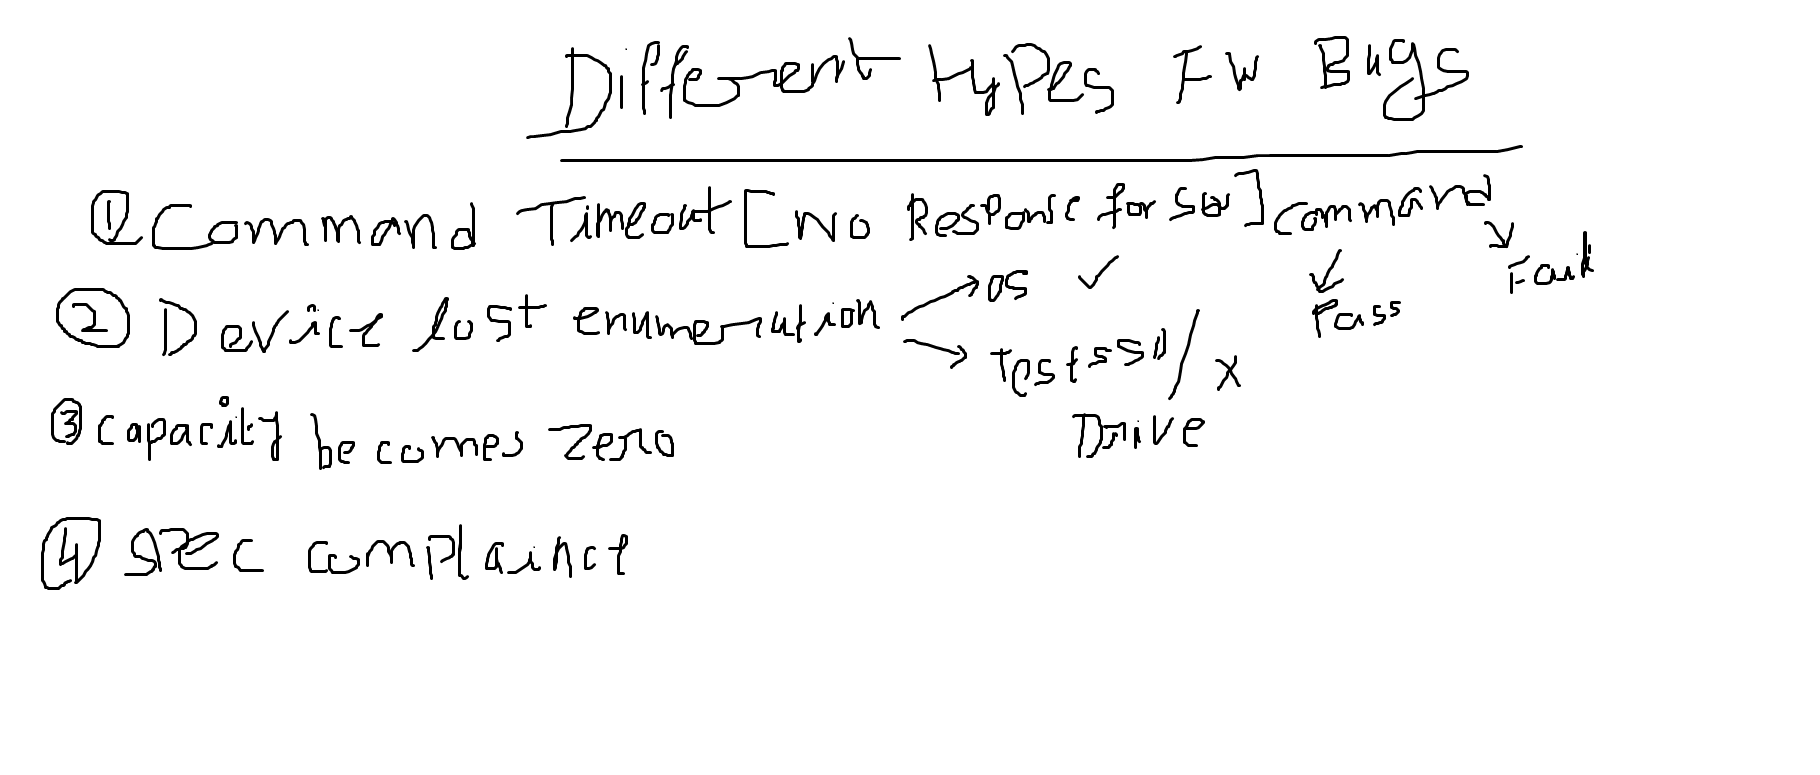 Different types FW Bugs
① Command Timeout [No Response for SW] Command
Pass
Fail
② Device lost enumeration
OS ✓
Test SSD/ X
Drive
③ capacity becomes zero
④ SPEC complaince